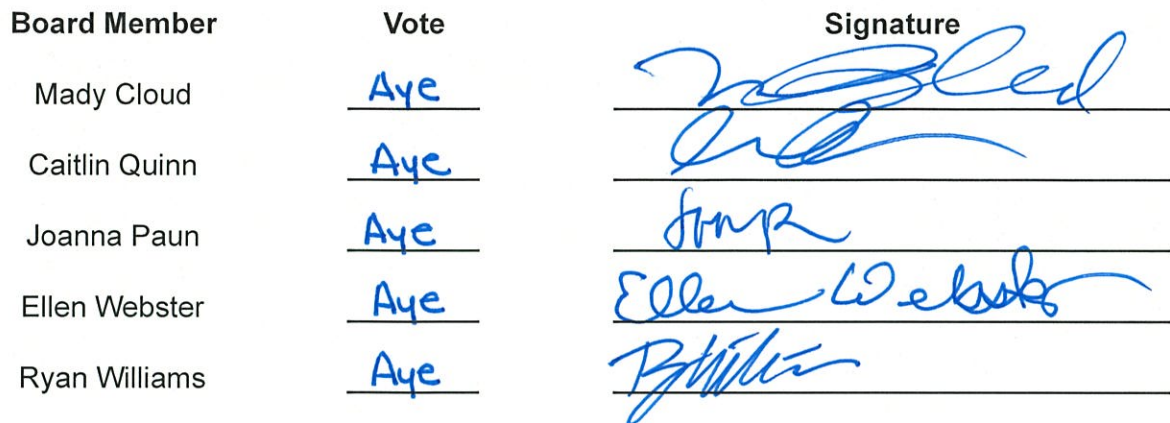 Board Member Vote Signature
Mady Cloud Aye
Caitlin Quinn Aye
Joanna Paun Aye
Ellen Webster Aye Ellen Webster
Ryan Williams Aye